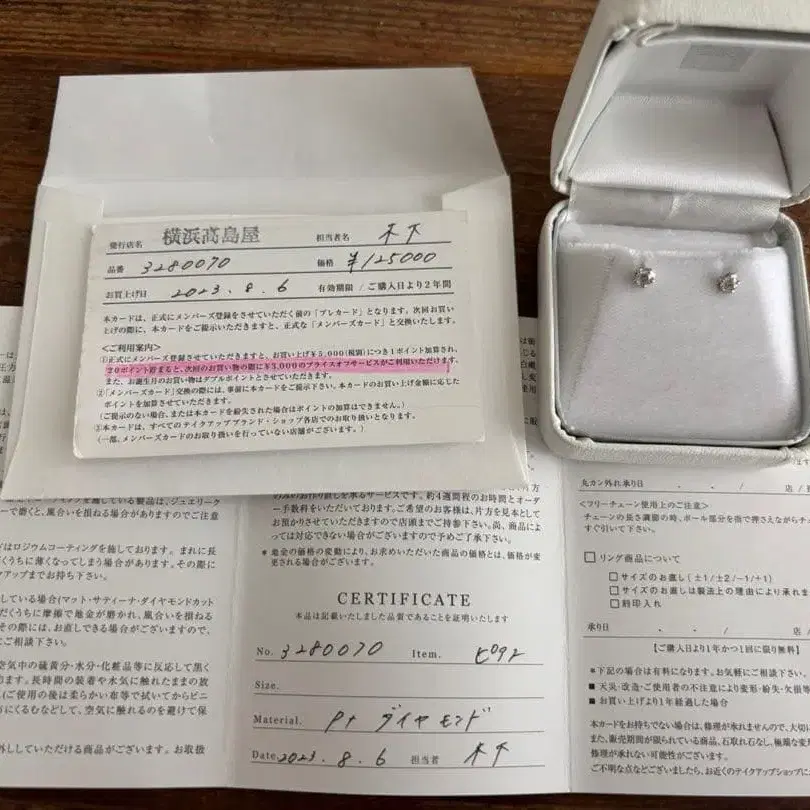 発行店名 横浜高島屋 担当者名 木下
品番 3280070 価格 ¥125000
お買上げ日 2023.8.6 有効期限 / ご購入日より2年間
本カードは、正式にメンバーズ登録をさせていただく前の「プレカード」となります。次回お買い
上げの際に、本カードをご提示いただきますと、正式な「メンバーズカード」と交換いたします。
<ご利用案内>
①正式にメンバーズ登録させていただきますと、お買い上げ¥5,000(税別)につき1ポイント加算され、
20ポイント貯まると、次回のお買い物の際に¥3,000のプライスオフサービスがご利用いただけます。
また、お誕生月のお買い物はダブルポイントとさせていただきます。
②「メンバーズカード」交換の際には、事前に本カードをご提示下さい。本カードのお買い上げ金額に応じた
ポイントを加算させていただきます。
(ご提示のない場合、または本カードを紛失された場合はポイントの加算はできません。)
③本カードは、すべてのテイクアップブランド・ショップ各店でのお取り扱いとなります。
(一部、メンバーズカードのお取り扱いを行っていない店舗がございます。)
している製品は、ジュエリーク
ーで磨くと、風合いを損ねる場合がありますのでご注意
はロジウムコーティングを施しております。まれに長
だくうちに薄くなってしまう場合があります。その際に
クアップまでお持ち下さい。
ている場合(マット・サティーナ・ダイヤモンドカット
だくうちに摩擦で地金が磨かれ、風合いを損ねる
その際には、お直しできる場合がございますので、
にご相談下さい。
空気中の硫黄分・水分・化粧品等に反応して黒く
ります。長時間の装着や水気にふれたままの放
(ご使用の後は柔らかい布等で拭いてからビニ
にくるむなどして、空気に触れるのを避けて保
外ししていただける商品がございます。お取扱
のみのお作り直しを承るサービスです。約4週間程のお時間とオーダ
ー手数料をいただいております。ご希望のお客様は、片方を見本として
お預かりさせていただきますので店頭までご持参下さい。尚、商品によ
っては対応できない場合がございますので予めご了承下さい。
*地金の価格の変動により、お求めいただいた商品の価格とは、価格が変
更される場合がございます。
CERTIFICATE
本品は記載いたしました品質であることを証明いたします
No. 3280070 Item. ピアス
Size.
Material. Pt ダイヤモンド
Date. 2023.8.6 担当者 木下
丸カン外れ承り日 ・ ・ / 店 /
<フリーチェーン使用上のご注意>
チェーンの長さ調節の時、ボール部分を指で押さえながらチ
すぐ引いて下さい。
□リング商品について
□サイズのお直し(±1/±2/−1/+1)
□サイズのお直しは製法上の理由により承れま
□刻印入れ
承り日 ・ ・ / 店 /
【ご購入日より1年かつ1回に限り無料】
*下記の場合は有料になります。お気軽にご相談下さい。
■天災・改造・ご使用者の不注意により変形・紛失・欠損等
■お買い上げより1年経過した場合
本カードをお持ちでない場合は、修理が承れませんので、大
また、販売期間が限られている商品、石取れ石なし、極端な変
修理が承れない可能性がございます。
ご不明な点などございましたら、お近くのテイクアップショップに